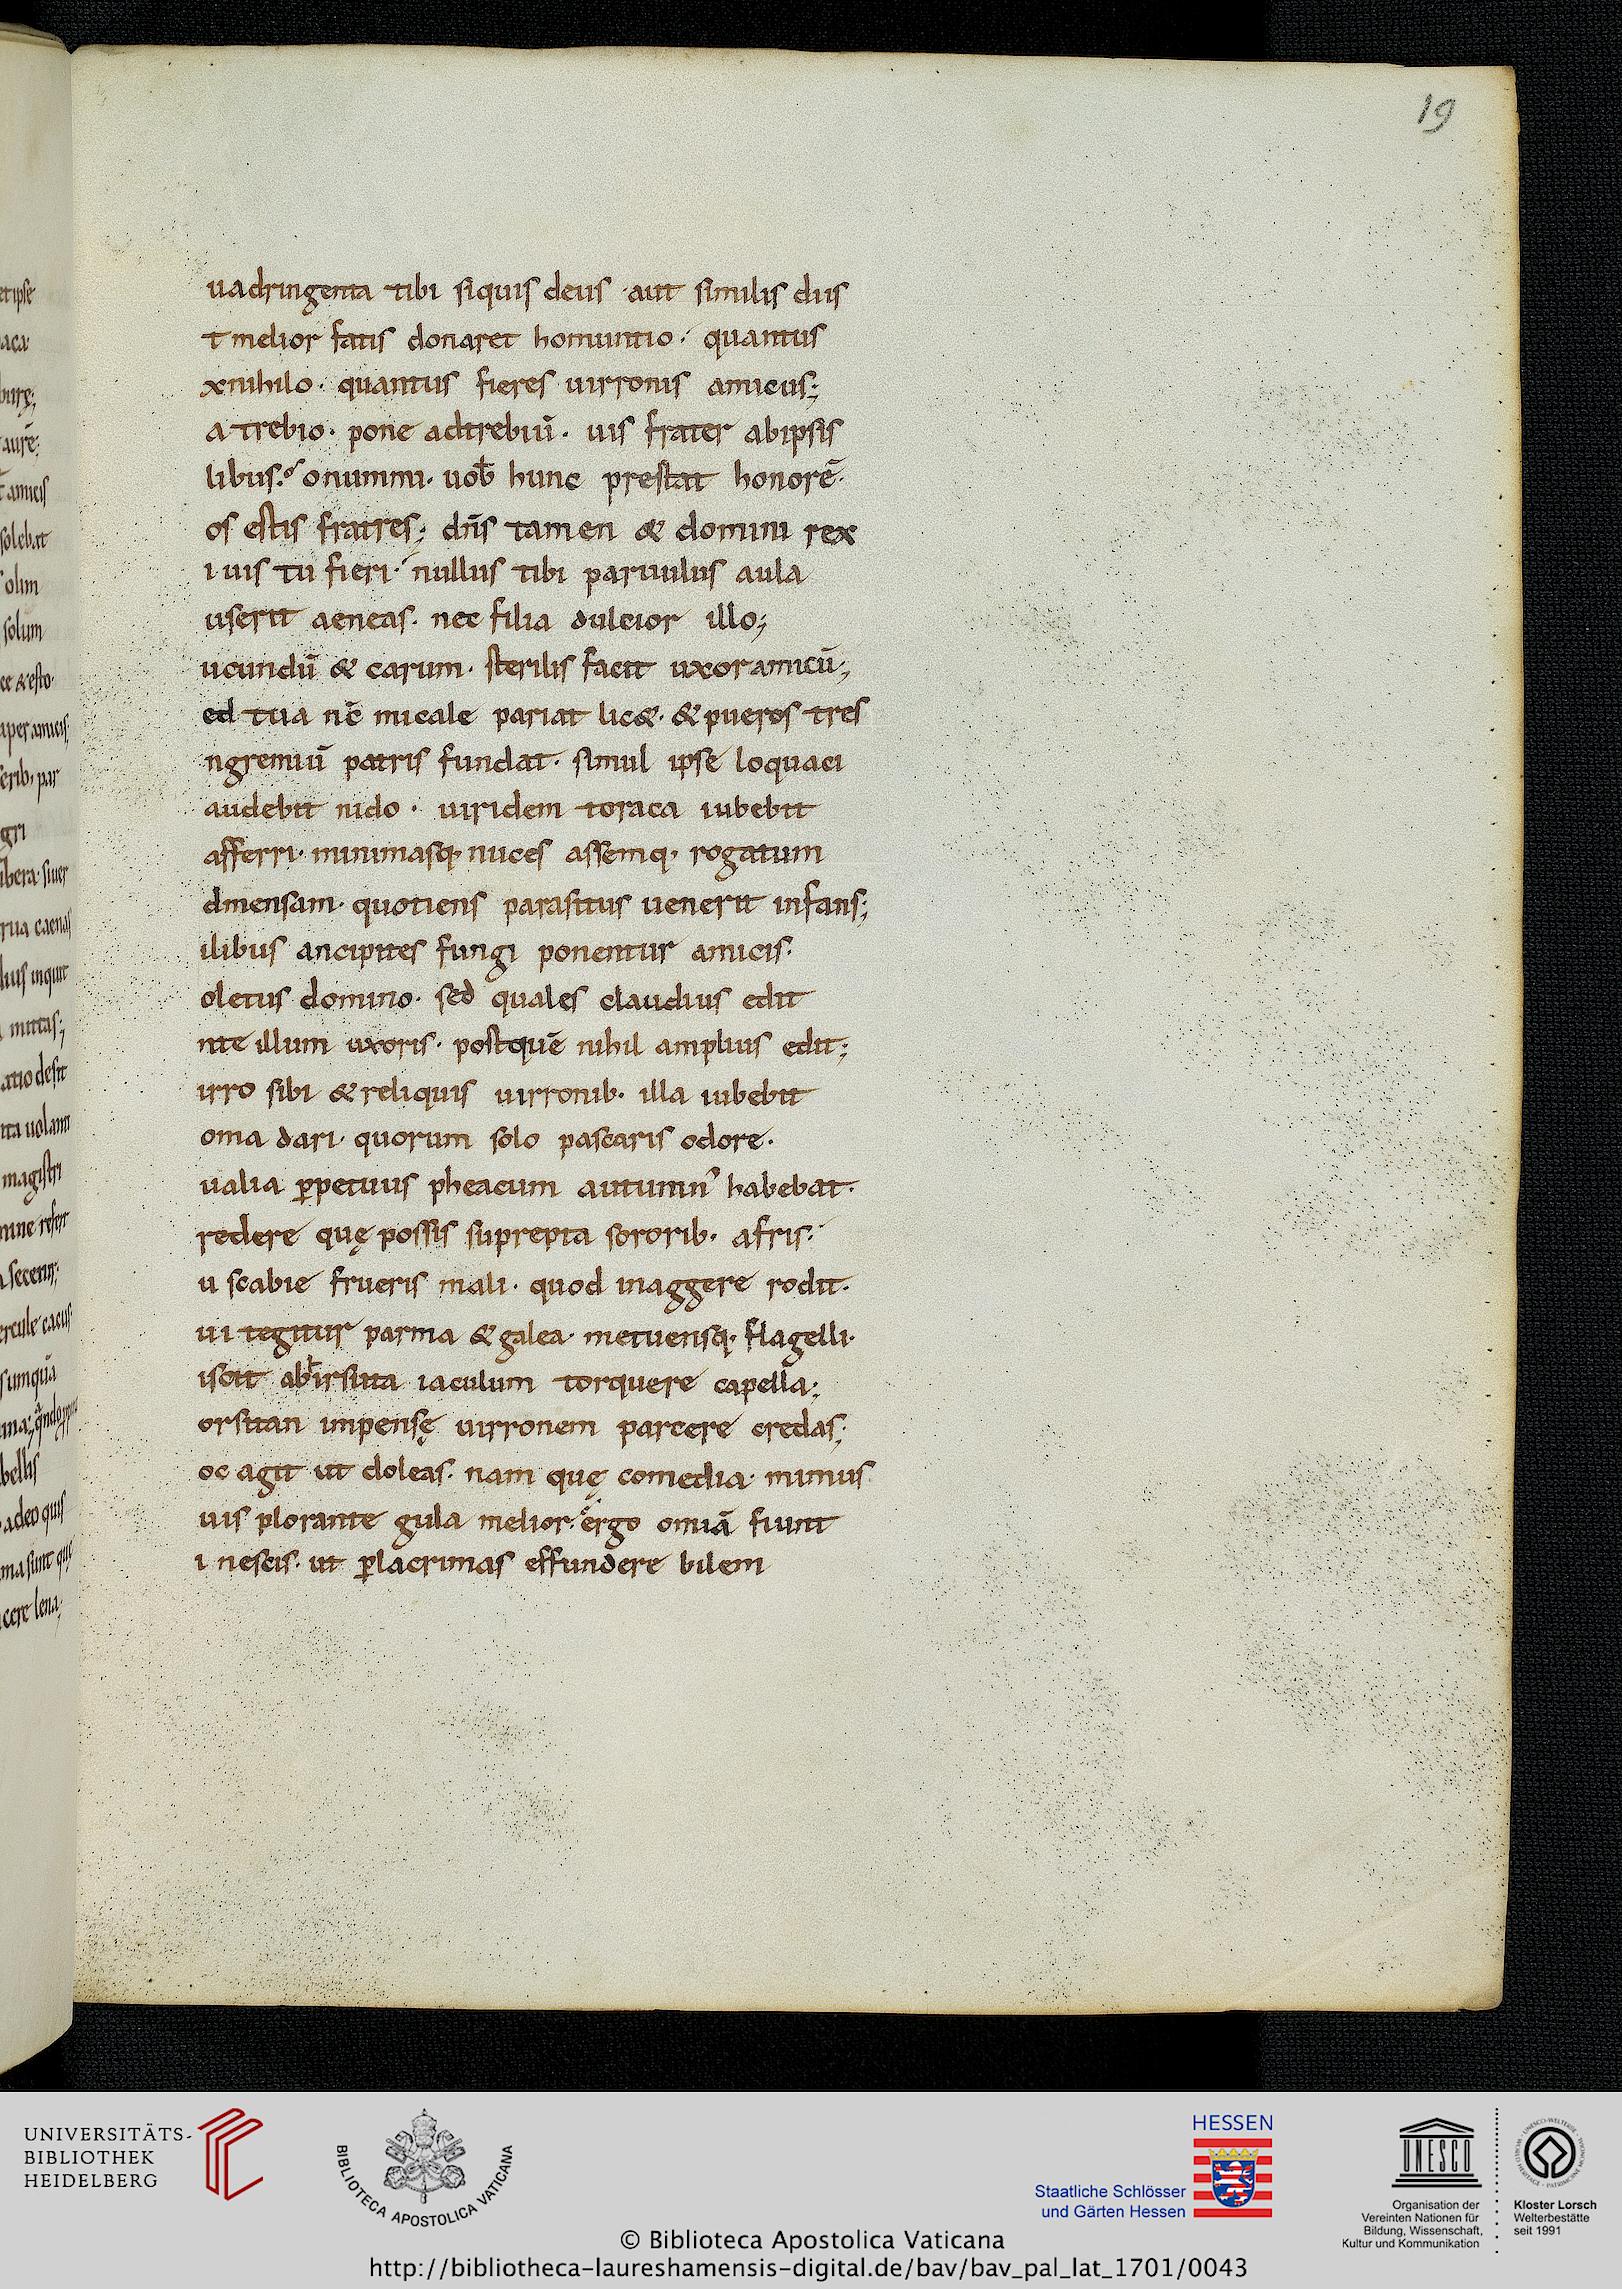 19
uadringenta tibi siquis deus · aut similis diis
t melior fatis donaret homuntio · quantus
xnihilo · quantus fieres uirronis amicus;
a trebio · pone adtrebiū · uis frater abipsis
libus · o nummi · uob̄ hunc prestat honorē ·
os estis fratres; dn̄s tamen & domini rex
i uis tu fieri · nullus tibi paruulus aula
userit aeneas · nec filia dulcior illo;
ucundū & carum · sterilis facit uxor amicū;
ed tua nc̄ micale pariat lic& · & pueros tres
ngremiū patris fundat · simul ipse loquaci
audebit nido · uiridem toraca iubebit
afferri · minimasq· nuces assemq· rogatum
dmensam · quotiens parasitus uenerit infans;
ilibus ancipites fungi ponentur amicis ·
oletus domino · sed quales claudius edit
nte illum uxoris · postquē nihil amplius edit;
irro sibi & reliquis uirronib· illa iubebit
oma dari · quorum solo pascaris odore ·
ualia ꝑpetuus pheacum autumn᾽ habebat ·
redere quę possis suprepta sororib· afris ·
u scabie frueris mali · quod inaggere rodit ·
ui tegitur parma & galea · metuensq· flagelli ·
iscit ab hirsuta iaculum torquere capella;
orsitan impensę uirronem parcere credas;
oc agit ut doleas · nam quę comedia · mimus
uis plorante gula melior · ergo omiā fiunt
i nescis · ut ꝑlacrimas effundere bilem
UNIVERSITÄTS-
BIBLIOTHEK
HEIDELBERG
BIBLIOTECA APOSTOLICA VATICANA
HESSEN
Staatliche Schlösser
und Gärten Hessen
UNESCO
Organisation der
Vereinten Nationen für
Bildung, Wissenschaft,
Kultur und Kommunikation
Kloster Lorsch
Welterbestätte
seit 1991
© Biblioteca Apostolica Vaticana
http://bibliotheca-laureshamensis-digital.de/bav/bav_pal_lat_1701/0043